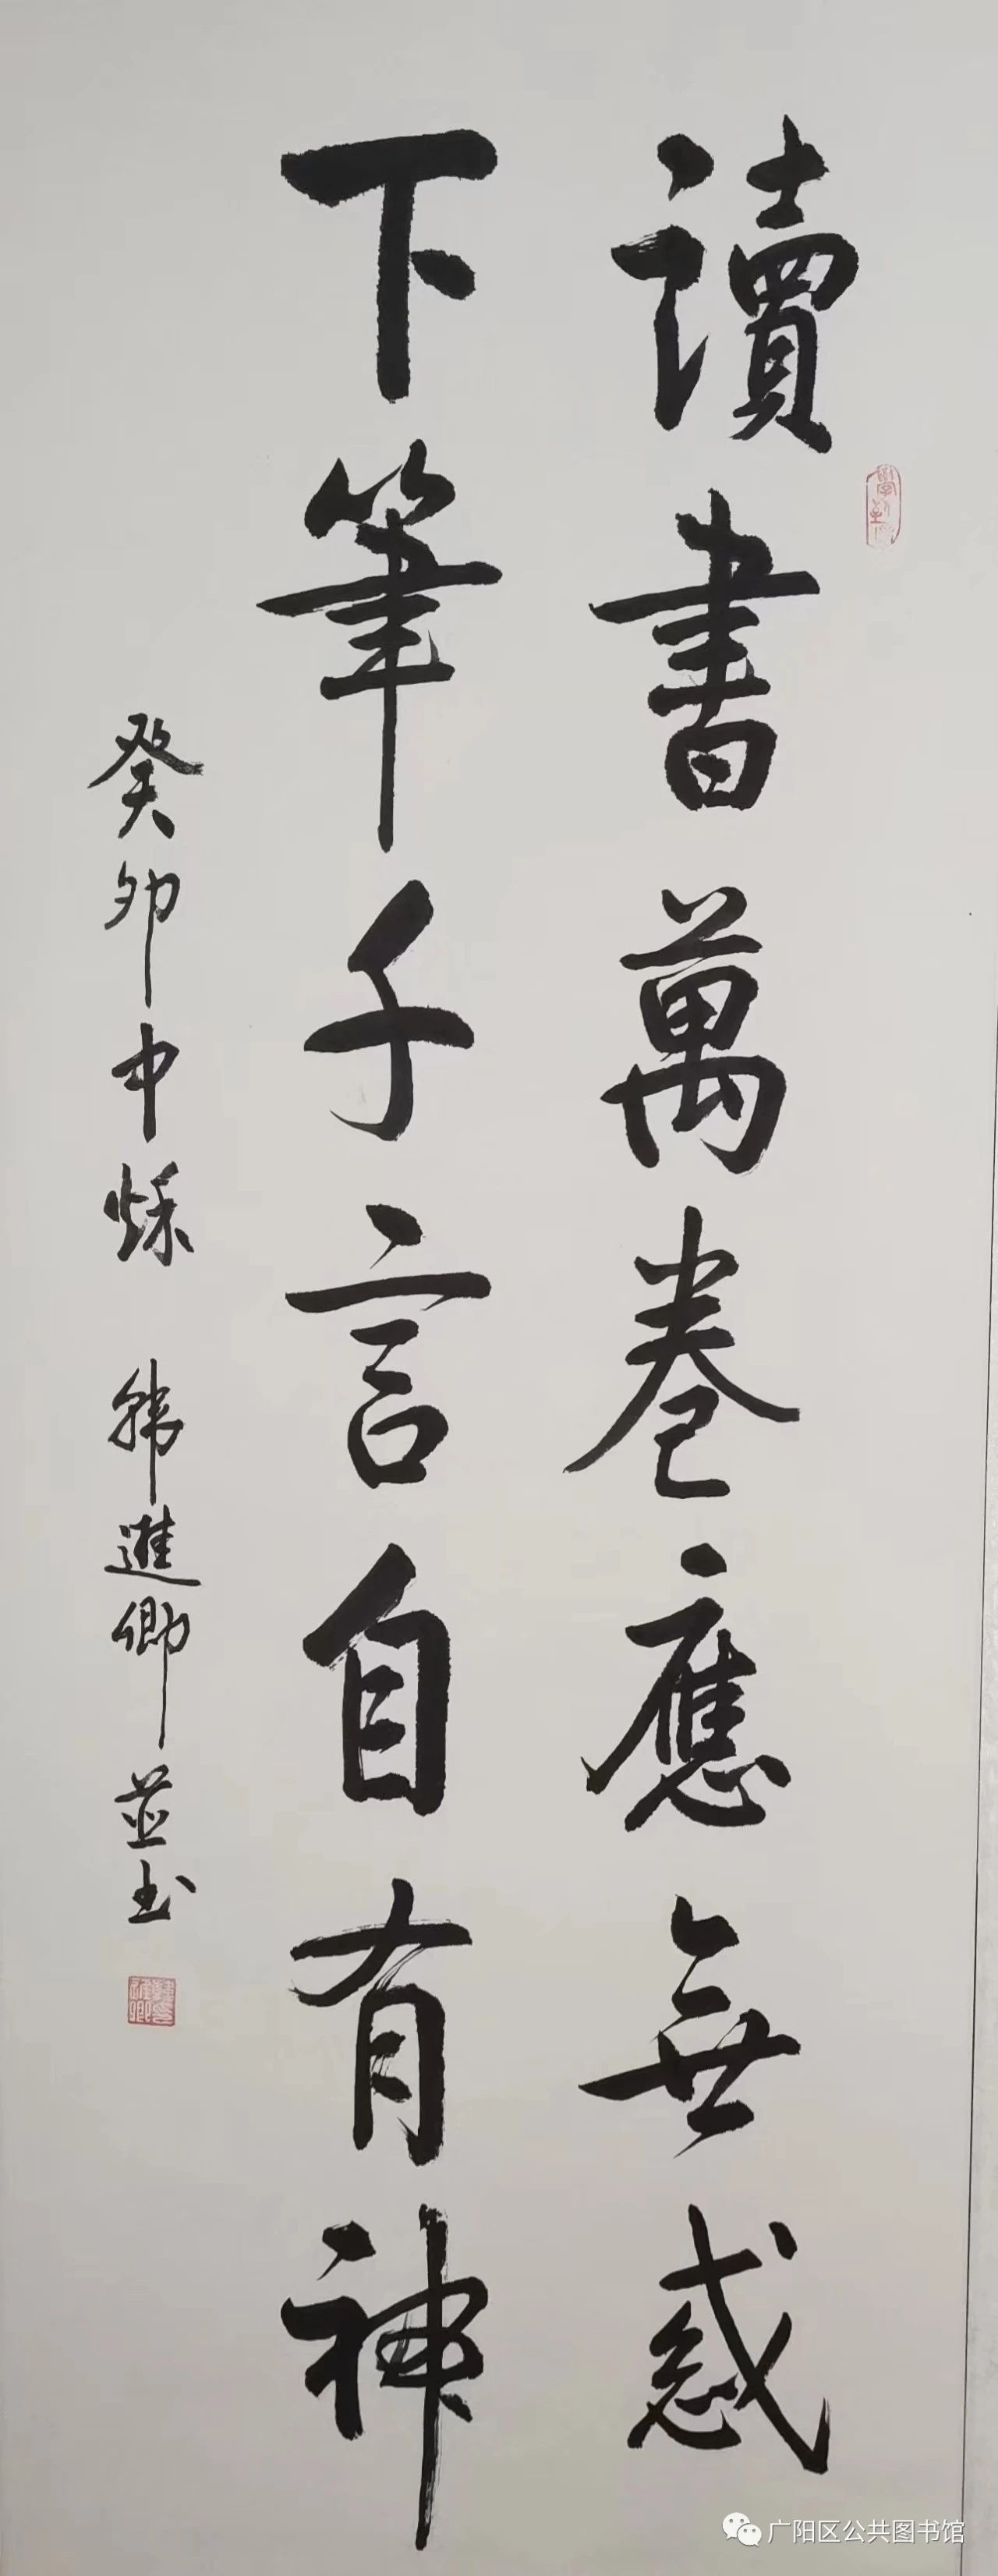 讀書萬卷應無惑
下筆千言自有神
癸卯中秌 韩進卿並书
广阳区公共图书馆